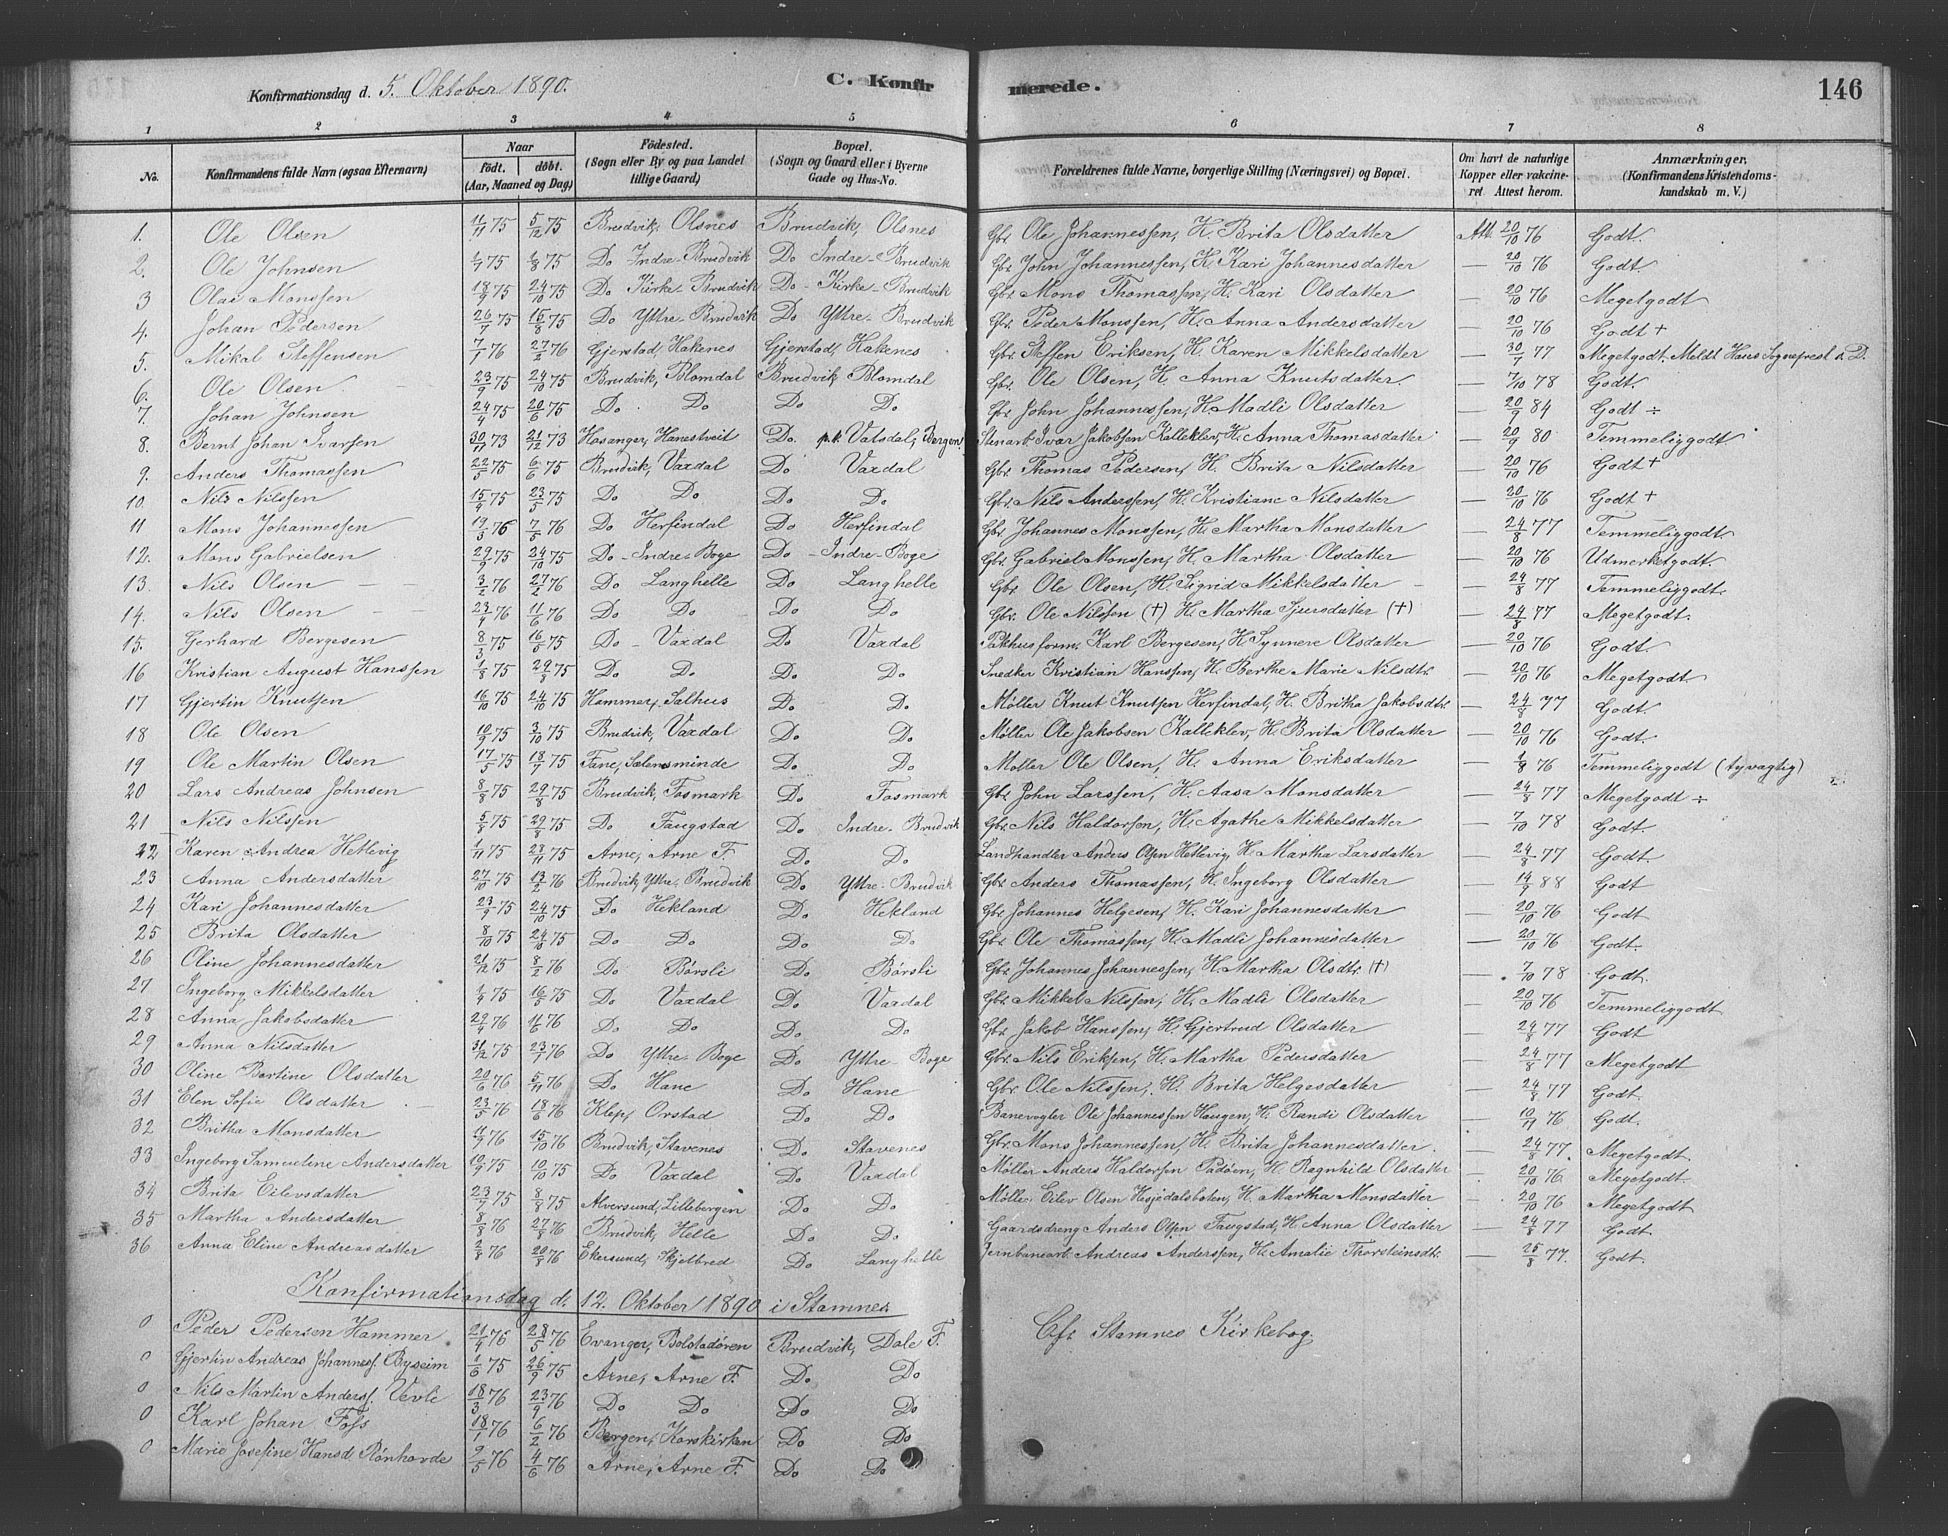 Konfirmationsdag d. 5. Oktober 1890. C. Konfirmerede. 146
1 2 3 4 5 6 7 8
No. Konfirmandens fulde Navn (ogsaa Efternavn) Naar født. døbt. (Aar, Maaned og Dag) Fødested. (Sogn eller By og paa Landet tillige Gaard) Bopæl. (Sogn og Gaard eller i Byerne Gade og Hus-No. Forældrenes fulde Navne, borgerlige Stilling (Næringsvei) og Bopæl. Om havt de naturlige Kopper eller vakcineret. Attest herom. Anmærkninger. (Konfirmandens Kristendomskundskab m. V.)
1. Ole Olsen 11/11 75 5/12 75 Brudvik, Olsnes Brudvik, Olsnes Gbr. Ole Johannessen, H. Brita Olsdatter Att. 20/10 76 Godt.
2. Ole Johnsen 1/7 75 1/8 75 Do Indre-Brudvik Do Indre-Brudvik Gbr. John Johannessen, H. Kari Johannesdatter — 20/10 76 Godt.
3 Olai Monssen 18/9 75 24/10 75 Do Kirke-Brudvik Do-Kirke-Brudvik Gbr. Mons Thomassen, H. Kari Olsdatter — 20/10 76 Megetgodt
4. Johan Pedersen 26/7 75 15/8 75 Do Yttre-Brudvik Do Yttre-Brudvik Gbr. Peder Monssen, H. Anna Andersdatter — 20/10 76 Godt +
5. Mikal Steffensen 7/1 76 27/2 76 Gjerstad, Hakenes Gjerstad, Hakenes Gbr. Steffen Eriksen, H. Karen Mikkelsdatter — 30/7 77 Megetgodt. Meldt Haus Sogneprest s. D.
6. Ole Olsen 23/9 75 24/10 75 Brudvik, Blomdal Brudvik, Blomdal Gbr. Ole Olsen, H. Anna Knutsdatter. — 7/10 78 Godt.
7. Johan Johnsen 24/4 75 20/6 75 Do Do Do Do Gbr. John Johannessen, H. Madli Olsdatter — 20/9 84 Godt ÷
8. Bernt Johan Ivarsen 30/11 73 21/12 73 Hosanger, Hanestveit Do. Vatsdal, Bergen Stenarb. Ivar Jakobsen Kalleklev, H. Anna Thomasdatter — 20/9 80 Temmeliggodt
9. Anders Thomassen 22/5 75 6/6 75 Brudvik, Vaxdal Do Vaxdal Gbr. Thomas Pedersen, H. Brita Nilsdatter — 20/10 76 Godt +
10. Nils Nilssen 15/4 75 23/5 75 Do Do Do Do Gbr. Nils Anderssen, H. Kristiane Nilsdatter — 20/10 76 Godt +
11 Mons Johannessen 19/3 76 7/5 76 Do Herfindal Do Herfindal Gbr. Johannes Monssen, H. Martha Monsdatter — 24/8 77 Temmeliggodt
12. Mons Gabrielsen 29/9 75 24/10 75 Do-Indre-Boge Do-Indre-Boge Gbr. Gabriel Monssen, H. Martha Olsdatter — 20/10 76 Udmerketgodt.
13. Nils Olsen 3/2 76 27/2 76 Do Langhelle Do Langhelle Gbr. Ole Olsen, H. Sigrid Mikkelsdatter — 24/8 77 Temmeliggodt.
14. Nils Olsen 23/4 76 11/6 76 Do Do Do Do Gbr. Ole Nilssen (+) H. Martha Sjursdatter (+) — 24/8 77 Megetgodt.
15. Gerhard Bergesen 8/3 75 16/5 75 Do-Vaxdal Do Vaxdal Pakhusform. Karl Bergesen, H. Synnere Olsdatter — 20/10 76 Godt.
16 Kristian August Hanssen 1/8 75 29/8 75 Do Do Do Do Snedker Kristian Hanssen, H. Berthe Marie Nilsdtr. — 20/10 76 Megetgodt.
17 Gjertin Knutsen 16/10 75 24/10 75 Hammer, Salhus Do Do Møller Knut Knutsen Herfindal, H. Britha Jakobsdtr. — 24/8 77 Godt.
18 Ole Olsen 10/9 75 3/10 75 Brudvik, Vaxdal Do Do Møller Ole Jakobsen Kalleklev, H. Brita Olsdatter — 20/10 76 Godt.
19 Ole Martin Olsen 17/5 75 18/7 75 Fane, Sælensminde Do Do Møller Ole Olsen, H. Anna Eriksdatter — 1/9 76 Temmeliggodt (tyvagtig)
20 Lars Andreas Johnsen 8/8 75 29/8 75 Brudvik, Fosmark Do Fosmark Gbr. John Larssen, H. Aasa Monsdatter — 24/8 77 Megetgodt ÷
21 Nils Nilssen 5/8 75 29/8 75 Do Faugstad Do Indre-Brudvik Gbr. Nils Haldorsen, H. Agathe Mikkelsdatter — 7/10 78 Godt.
22 Karen Andrea Hetlevig 1/11 75 28/11 75 Arne, Arne F. Do Do Landhandler Anders Olsen Hetlevig, H. Martha Larsdatter — 24/8 77 Godt
23 Anna Andersdatter 27/10 75 13/2 76 Brudvik, Yttre-Brudvik Do Yttre-Brudvik Gbr. Anders Thomassen, H. Ingeborg Olsdatter — 14/9 88 Godt
24 Kari Johannesdatter 23/9 75 24/10 75 Do Hekland Do Hekland Gbr. Johannes Helgesen, H. Kari Johannesdatter — 20/10 76 Godt
25 Brita Olsdatter 8/10 75 24/10 75 Do Do Do Do Gbr. Ole Thomassen, H. Madli Johannesdatter — 20/10 76 Godt.
26 Oline Johannesdatter 21/12 75 8/2 76 Do Børsli Do Børsli Gbr. Johannes Johannessen, H. Martha Olsdtr. (+) — 7/10 78 Godt.
27 Ingeborg Mikkelsdatter 1/4 75 16/5 75 Do Vaxdal Do Vaxdal Gbr. Mikkel Nilssen, H. Madli Olsdatter — 20/10 76 Temmeliggodt
28 Anna Jakobsdatter 29/4 76 11/6 76 Do Do Do Do Gbr. Jakob Hanssen, H. Gjertrud Olsdatter — 24/8 77 Godt
29 Anna Nilsdatter 31/12 75 23/1 76 Do Yttre-Boge Do Yttre Boge Gbr. Nils Eriksen, H. Martha Pedersdatter — 24/8 77 Megetgodt
30 Oline Bertine Olsdatter 20/6 76 5/11 76 Do Hane Do Hane Gbr. Ole Nilssen, H. Brita Helgesdatter — 24/8 77 Godt
31 Elen Sofie Olsdatter 23/5 76 18/6 76 Klep, Orstad Do Do Banevogter Ole Johannessen Haugen, H. Randi Olsdatter — 10/11 76 Godt.
32 Britha Monsdatter 11/9 76 15/10 76 Brudvik, Stavenes Do Stavenes Gbr. Mons Johannessen, H. Brita Johannesdatter — 24/8 77. Megetgodt.
33 Ingeborg Samueline Andersdatter 10/9 75 10/10 75 Do Vaxdal Do Vaxdal Møller Anders Haldorsen Padøen, H. Ragnhild Olsdatter — 20/10 76 Megetgodt.
34 Brita Eilevsdatter 23/7 75 8/8 75 Alversund, Lillebergen Do Do Møller Eilev Olsen Hesjedalsboten, H. Martha Monsdatter — 20/10 76 Megetgodt
35 Martha Andersdatter 8/8 76 27/8 76 Brudvik, Helle Do Do Gaardsdreng Anders Olsen Faugstad, H. Anna Olsdatter — 24/8 77 Godt
36 Anna Eline Andreasdatter 2/8 76 20/8 76 Ekersund, Skjelbred Do Langhelle Jernbanearb. Andreas Anderssen, H. Amalie Thorsteinsdtr. — 25/8 77. Godt.
Konfirmationsdag d. 12. Oktober 1890 i Stamnes
0 Peder Pedersen Hammer 21/4 76 28/5 76 Evanger, Bolstadøren Brudvik, Dale F. Cfr. Stamnes Kirkebog.
0 Gjertin Andreas Johanness. Byseim 1/6 75 26/9 75 Arne, Arne F. Do Do
0 Nils Martin Anderss. Vevli 18/3 76 23/9 76 Do Do Do Do
0 Karl Johan Foss 18/1 76 6/2 76 Bergen, Korskirken Do Do
0 Marie Josefine Hansd. Rønhovde 9/5 76 4/6 76 Arne, Arne F. Do Do